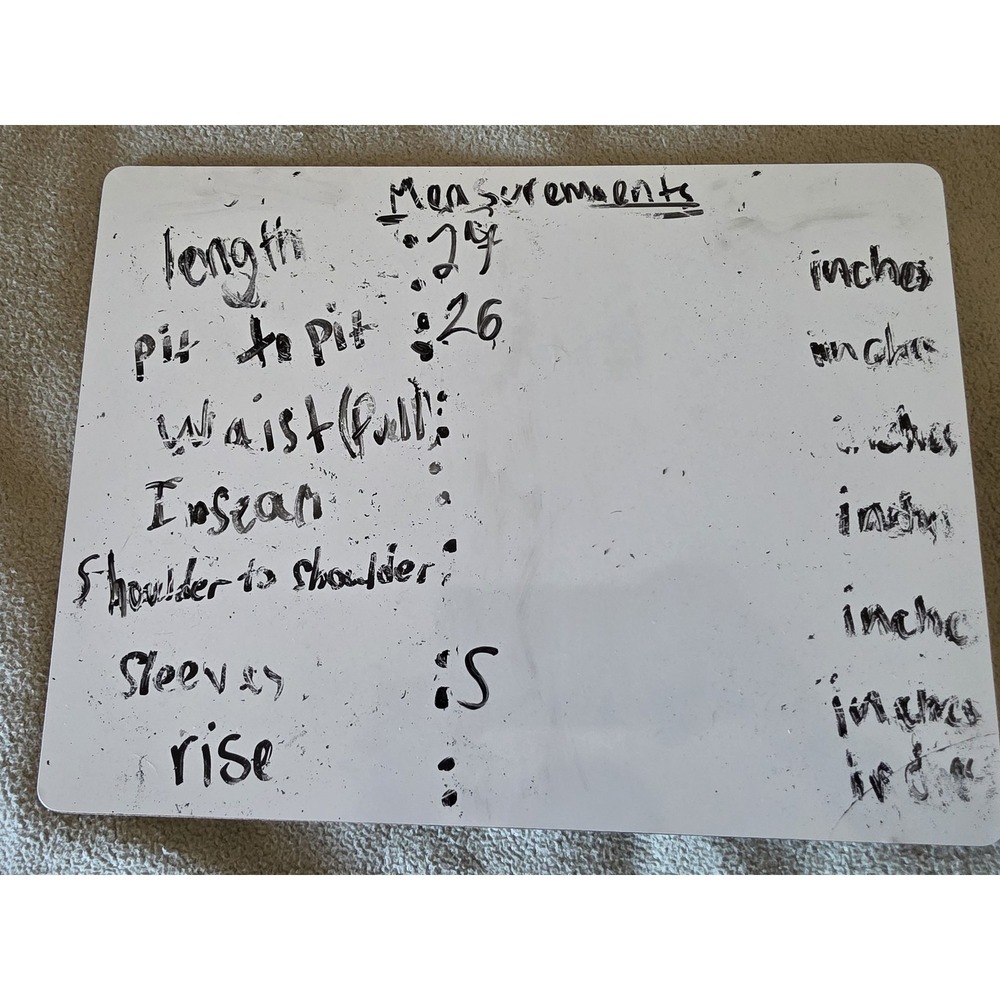 Measurements
length : inches
pit to pit : 26 inches
Waist (full) : inches
Inseam : inches
Shoulder to shoulder : inche
Sleeves : 5 inches
rise :